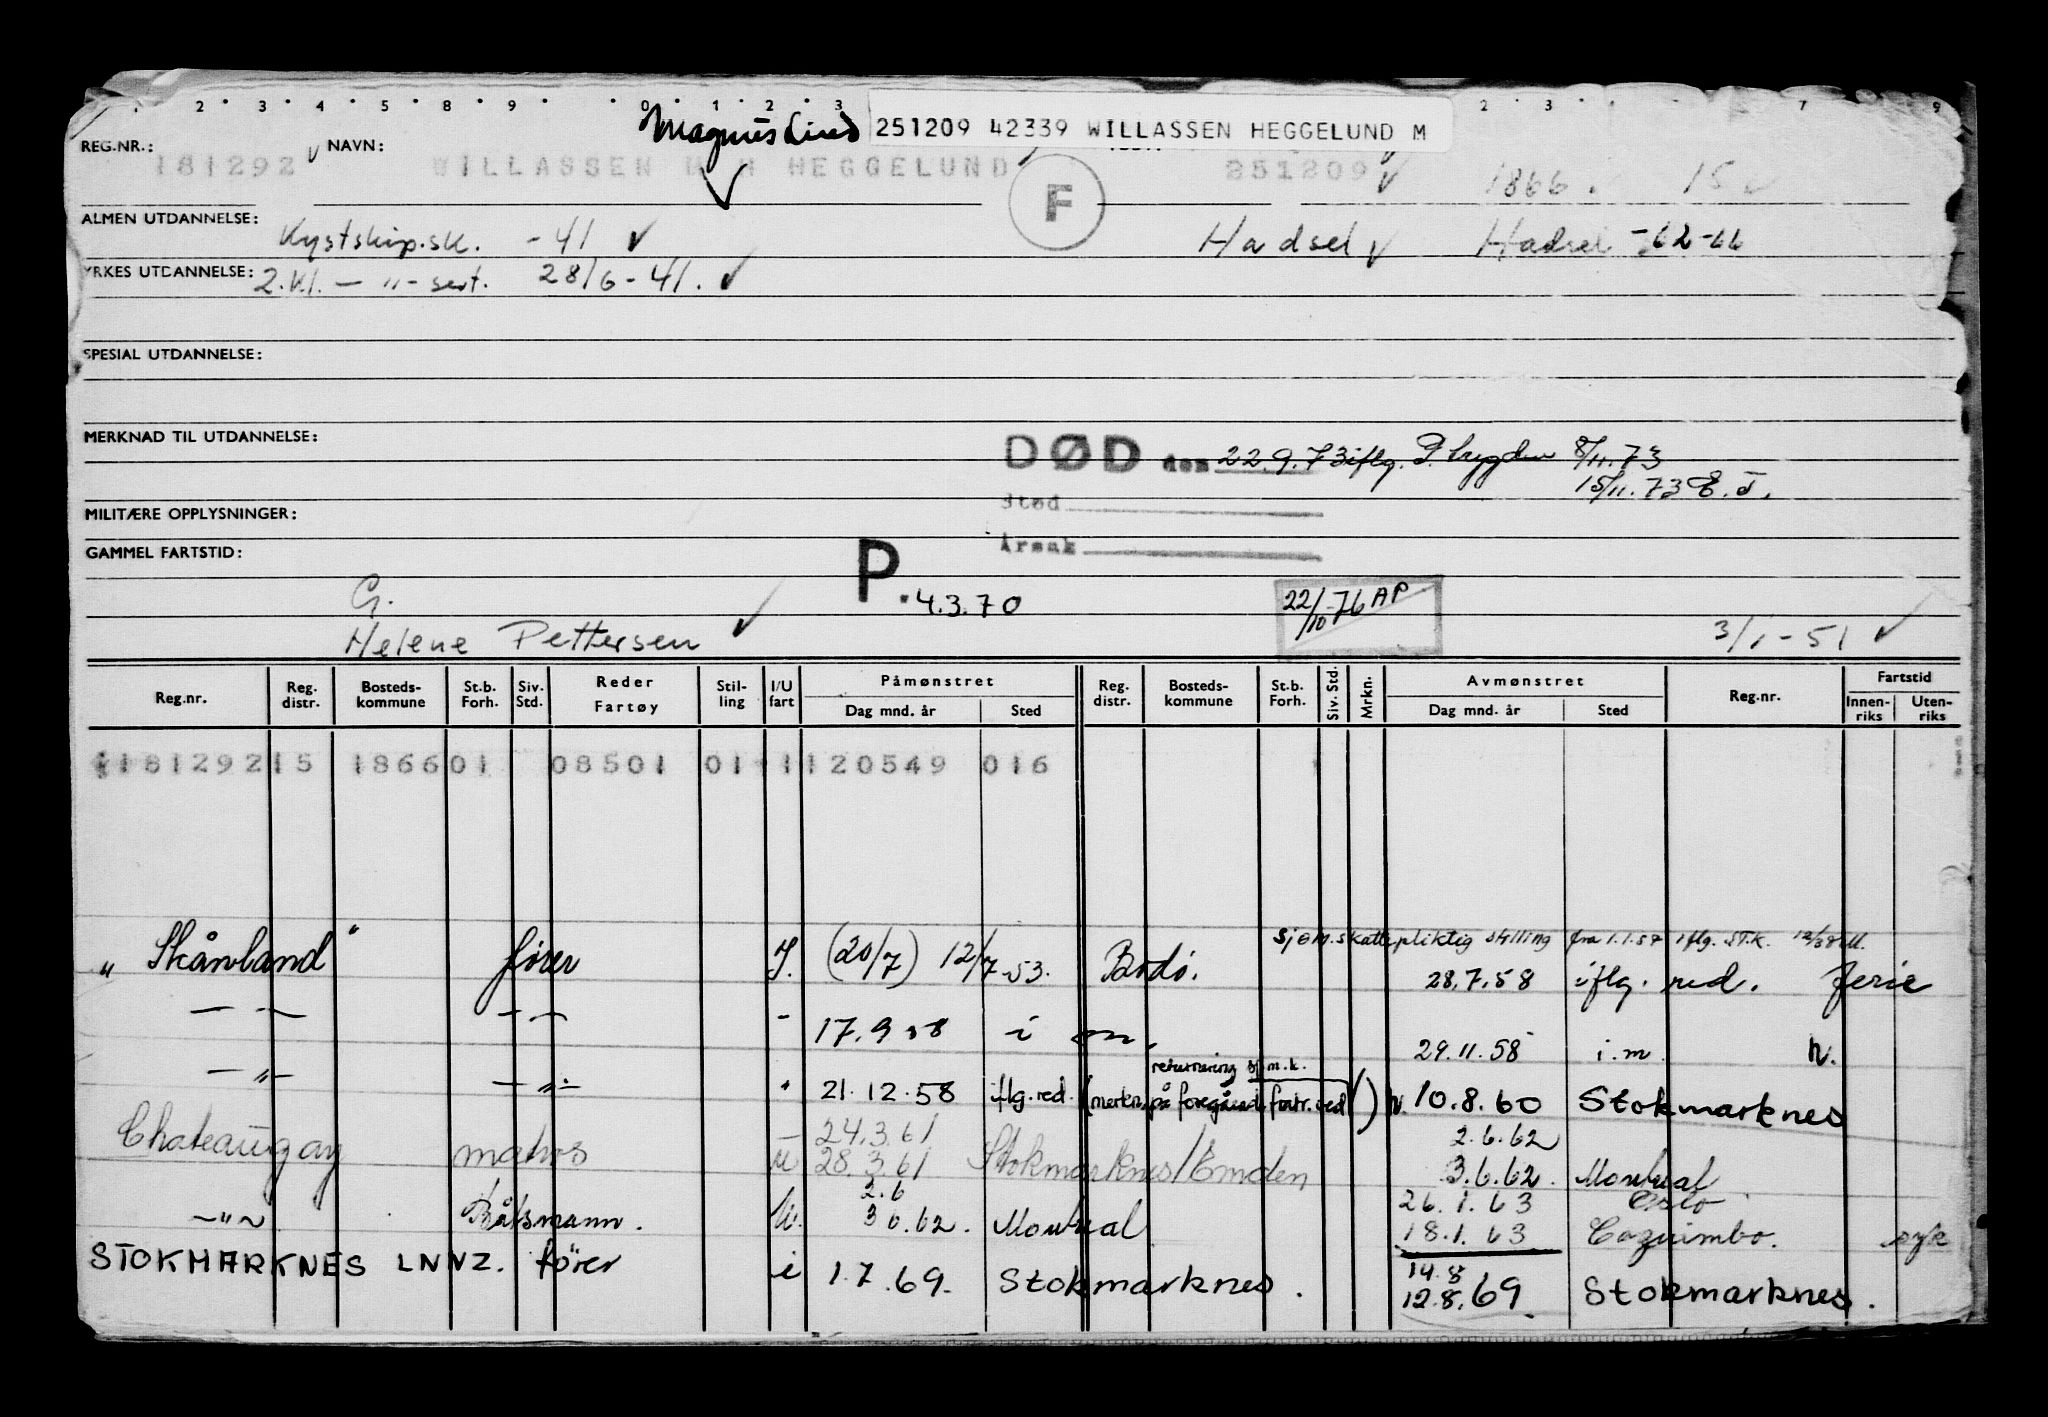 1 2 3 4 5 8 9 0 1 2 3 2 3 7 9
Magnus Lind 251209 42339 WILLASSEN HEGGELUND M
REG.NR.: NAVN:
181292 WILLASSEN M H HEGGELUND 251209 1866 15
F
ALMEN UTDANNELSE: Kystskip.sk. -41 Hadsel Hadsel -62-66
YRKES UTDANNELSE: 2.kl. — " - sert. 28/6-41.
SPESIAL UTDANNELSE:
MERKNAD TIL UTDANNELSE:
DØD den 22.9.73 iflg. P. trygden 8/11.73
15/11.73 E.J.
MILITÆRE OPPLYSNINGER:
Sted
GAMMEL FARTSTID:
Årsak
P. 4.3.70
22/10-76 AP
G.
Helene Pettersen 3/1-51
Reg.nr. Reg. distr. Bosteds- kommune St.b. Forh. Siv. Std. Reder Fartøy Stil- ling I/U fart Påmønstret Dag mnd. år Sted Reg. distr. Bosteds- kommune St.b. Forh. Siv. Std. Mrkn. Avmønstret Dag mnd. år Sted Reg.nr. Fartstid Innen- riks Uten- riks
18129215 186601 08501 01 1 120549 016
sjøm.skattepliktig stilling fra 1.1.58 iflg. ST.K.
" Skånland " fører I. (20/7) 12/7-53. Bodø. 28.7.58 iflg. red. ferie
— — — — - 17.9.58 i m. 29.11.58 i.m. h.
returnering sj.m.k.
— " — — " — " 21.12.58 iflg.red. (merkn. på foregåend. fortr. ved) h. 10.8.60 Stokmarknes
24.3.61 2.6.62
Chateaugay matros u 28.3.61 Stokmarknes/Emden 3.6.62. Montreal
2.6 26.1.63 Oslo
— " — Båtsmann. U. 3 6.62. Montreal 18.1.63 Coquimbo. syk
STOKMARKNES LNNZ. fører i 1.7.69. Stokmarknes. 14.8
12.8.69 Stokmarknes.